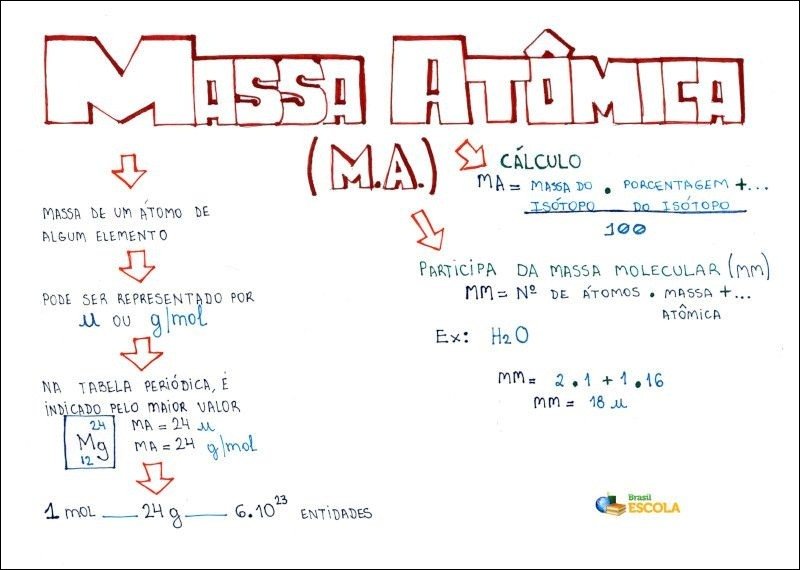 MASSA ATÔMICA
(M.A.)
MASSA DE UM ÁTOMO DE
ALGUM ELEMENTO
PODE SER REPRESENTADO POR
u OU g/mol
NA TABELA PERIÓDICA, É
INDICADO PELO MAIOR VALOR
24
Mg
12
MA = 24 u
MA = 24 g/mol
1 MOL ___ 24 g ___ 6.10²³ ENTIDADES
CÁLCULO
MA = MASSA DO . PORCENTAGEM + ...
ISÓTOPO DO ISÓTOPO
100
PARTICIPA DA MASSA MOLECULAR (MM)
MM = Nº DE ÁTOMOS . MASSA + ...
ATÔMICA
Ex: H₂O
MM = 2 . 1 + 1 . 16
MM = 18 u
Brasil
ESCOLA